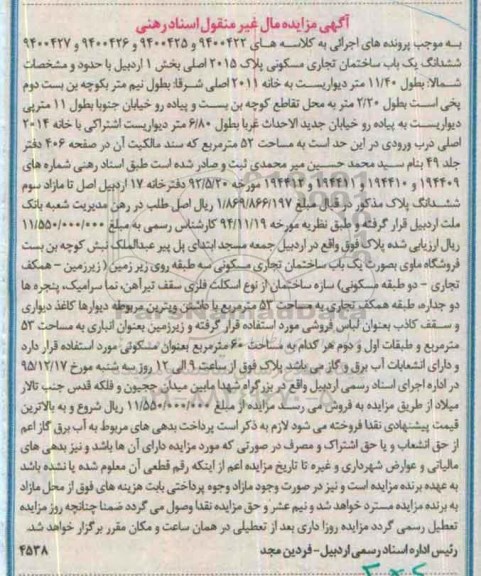 آگهی مزایده مال غیر منقول اسناد رهنی
به موجب پرونده های اجرائی به کلاسه های ۹۴۰۰۴۲۲ و ۹۴۰۰۴۲۵ و ۹۴۰۰۴۲۶ و ۹۴۰۰۴۲۷
ششدانگ یک باب ساختمان تجاری مسکونی پلاک ۲۰۱۵ اصلی بخش ۱ اردبیل با حدود و مشخصات
شمالا: بطول ۱۱/۴۰ متر دیواریست به خانه ۲۰۱۱ اصلی شرقا: بطول نیم متر بکوچه بن بست دوم
پخی است بطول ۲/۲۰ متر به محل تقاطع کوچه بن بست و پیاده رو خیابان جنوبا بطول ۱۱ متر پی
دیواریست به پیاده رو خیابان جدید الاحداث غربا بطول ۶/۸۰ متر دیواریست اشتراکی با خانه ۲۰۱۴
اصلی درب ورودی در این حد است به مساحت ۵۲ مترمربع که سند مالکیت آن در صفحه ۴۰۶ دفتر
جلد ۴۹ بنام سید محمد حسین میر محمدی ثبت و صادر شده است طبق اسناد رهنی شماره های
۱۹۴۴۰۹ و ۱۹۴۴۱۰ و ۱۹۴۴۱۱ و ۱۹۴۴۱۲ مورخه ۹۲/۵/۲۰ دفترخانه ۱۷ اردبیل اصل تا مازاد سوم
ششدانگ پلاک مذکور در قبال مبلغ ۱/۸۶۹/۸۶۶/۱۹۷ ریال اصل طلب در رهن مدیریت شعبه بانک
ملت اردبیل قرار گرفته و طبق نظریه مورخه ۹۴/۱۱/۱۹ کارشناس رسمی به مبلغ ۱۱/۵۵۰/۰۰۰/۰۰۰
ریال ارزیابی شده پلاک فوق واقع در اردبیل جمعه مسجد ابتدای پل پیر عبدالملک نبش کوچه بن بست
فروشگاه ماوی بصورت یک باب ساختمان تجاری مسکونی سه طبقه روی زیر زمین ( زیرزمین - همکف
تجاری - دو طبقه مسکونی) سازه ساختمان از نوع اسکلت فلزی سقف تیرآهن، نما سرامیک، پنجره ها
دو جداره، طبقه همکف تجاری به مساحت ۵۲ مترمربع با داشتن ویترین مربوطه دیوارها کاغذ دیواری
و سقف کاذب بعنوان لباس فروشی مورد استفاده قرار گرفته و زیرزمین بعنوان انباری به مساحت ۵۲
مترمربع و طبقات اول و دوم هر کدام به مساحت ۶۰ مترمربع بعنوان مسکونی مورد استفاده قرار دارد
و دارای انشعابات آب برق و گاز می باشد پلاک فوق از ساعت ۹ الی ۱۲ روز سه شنبه مورخ ۹۵/۱۲/۱۷
در اداره اجرای اسناد رسمی اردبیل واقع در بزرگراه شهدا مابین میدان ججیون و فلکه قدس جنب تالار
میلاد از طریق مزایده به فروش می رسد مزایده از مبلغ ۱۱/۵۵۰/۰۰۰/۰۰۰ ریال شروع و به بالاترین
قیمت پیشنهادی نقدا فروخته می شود لازم به ذکر است پرداخت بدهی های مربوط به آب برق گاز اعم
از حق انشعاب و یا حق اشتراک و مصرف در صورتی که مورد مزایده دارای آن ها باشد و نیز بدهی های
مالیاتی و عوارض شهرداری و غیره تا تاریخ مزایده اعم از اینکه رقم قطعی آن معلوم شده یا نشده باشد
به عهده برنده مزایده است و نیز در صورت وجود مازاد وجوه پرداختی بابت هزینه های فوق از محل مازاد
به برنده مزایده مسترد خواهد شد و نیم عشر و حق مزایده نقدا وصول می گردد ضمنا چنانچه روز مزایده
تعطیل رسمی گردد مزایده روز اداری بعد از تعطیلی در همان ساعت و مکان مقرر برگزار خواهد شد.
رئیس اداره اسناد رسمی اردبیل - فردین مجد ۴۵۳۸